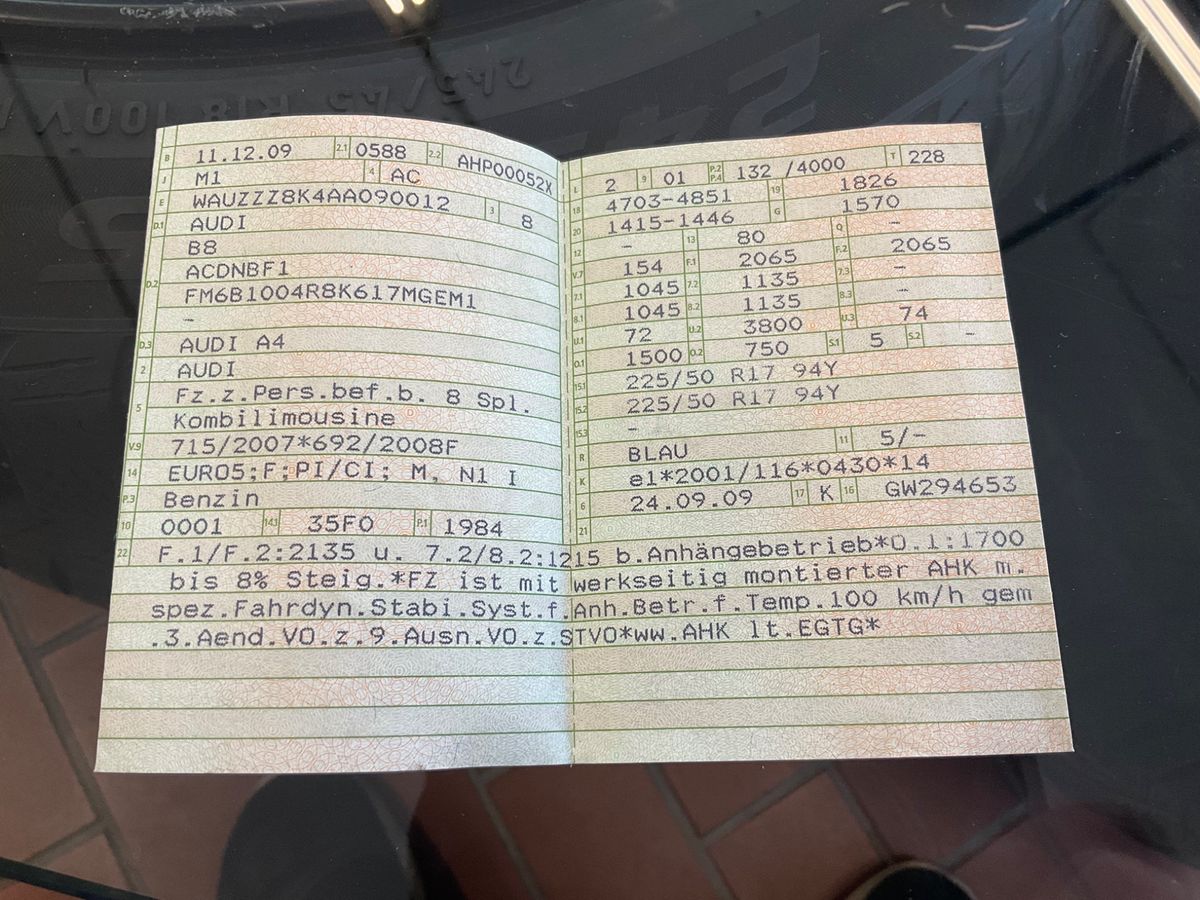 245/45 R18 100V
B 11.12.09 2.1 0588 2.2 AHP00052X
J M1 4 AC
E WAUZZZ8K4AA090012 3 8
D.1 AUDI
B8
D.2 ACDNBF1
FM6B1004R8K617MGEM1
-
D.3 AUDI A4
2 AUDI
5 Fz.z.Pers.bef.b. 8 Spl.
Kombilimousine
V.9 715/2007*692/2008F
14 EURO5;F;PI/CI; M, N1 I
P.3 Benzin
10 0001 14.1 35F0 P.1 1984
L 2 9 01 P.2 P.4 132 /4000 T 228
18 4703-4851 19 1826
20 1415-1446 G 1570
12 - 13 80 Q -
V.7 154 F.1 2065 F.2 2065
7.1 1045 7.2 1135 7.3 -
8.1 1045 8.2 1135 8.3 -
U.1 72 U.2 3800 U.3 74
O.1 1500 O.2 750 S.1 5 S.2 -
15.1 225/50 R17 94Y
15.2 225/50 R17 94Y
15.3 -
R BLAU 11 5/-
K e1*2001/116*0430*14
6 24.09.09 17 K 16 GW294653
21
22 F.1/F.2:2135 u. 7.2/8.2:1215 b.Anhängebetrieb*O.1:1700
bis 8% Steig.*FZ ist mit werkseitig montierter AHK m.
spez.Fahrdyn.Stabi.Syst.f.Anh.Betr.f.Temp.100 km/h gem
.3.Aend.VO.z.9.Ausn.VO.z.STVO*ww.AHK lt.EGTG*